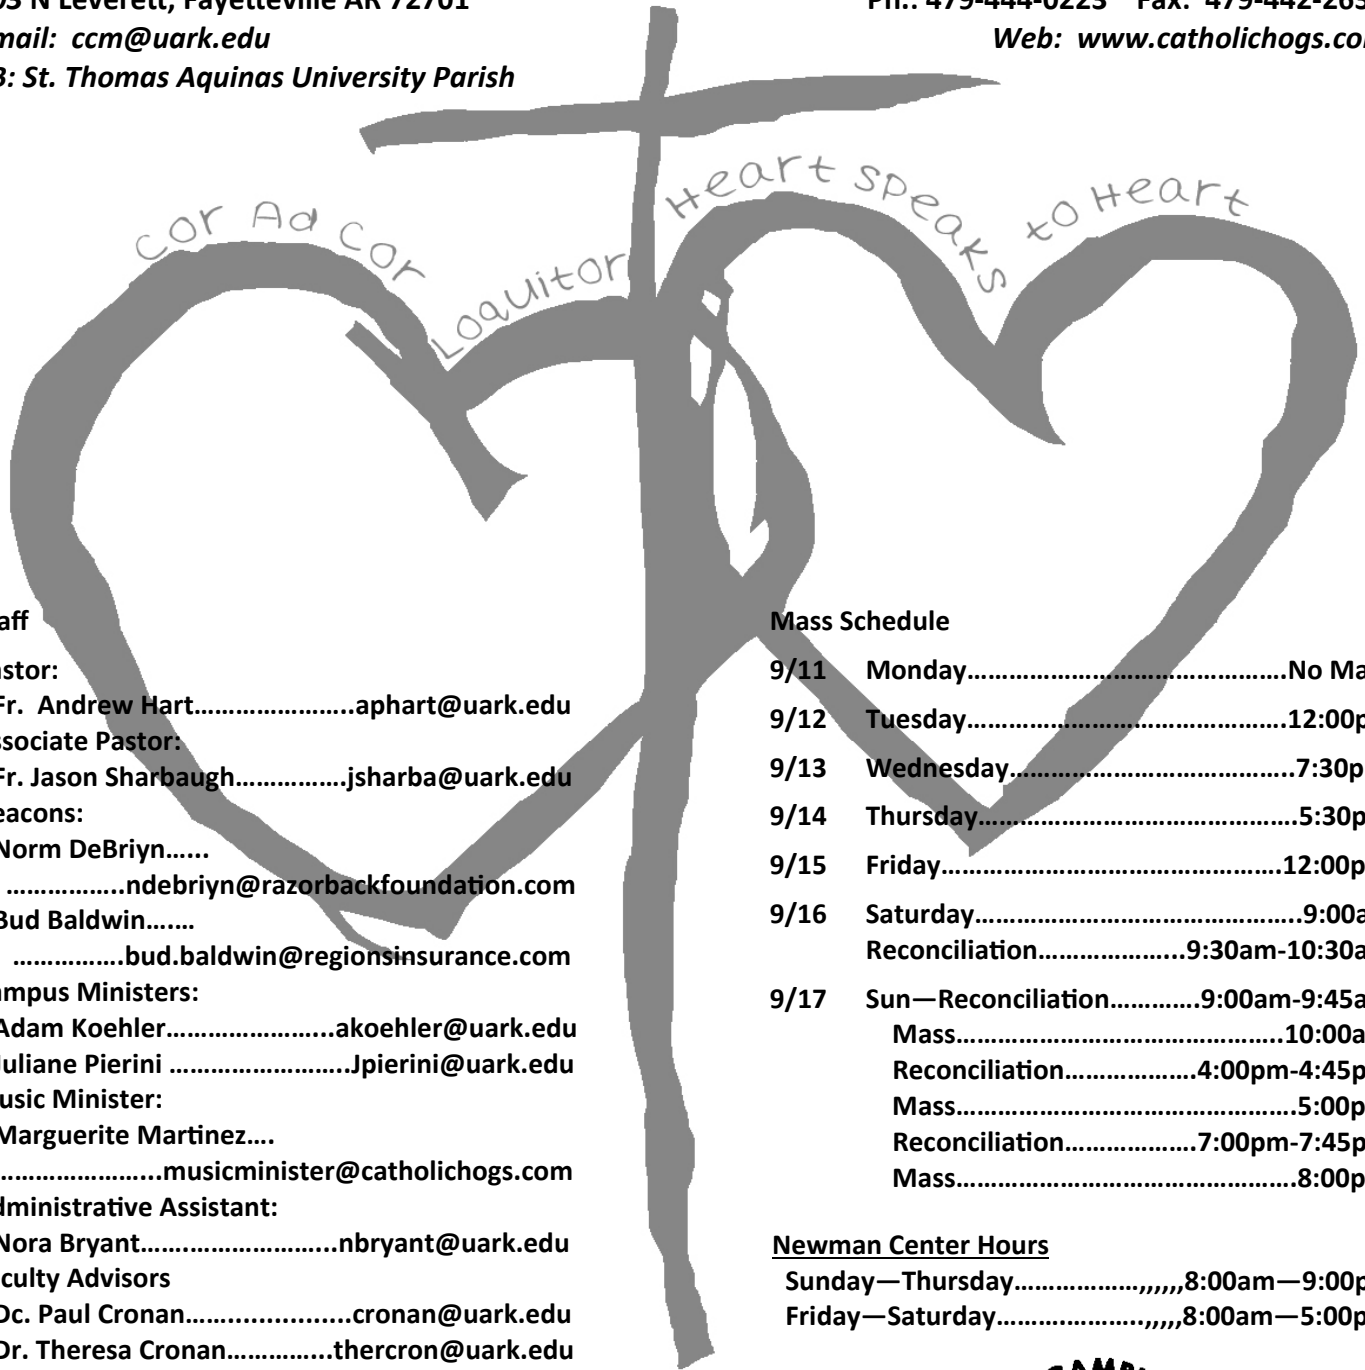 03 N Leverett, Fayetteville AR 72701
Ph.: 479-444-0223 Fax: 479-442-265
mail: ccm@uark.edu
Web: www.catholichogs.co
B: St. Thomas Aquinas University Parish
Cor Ad Cor Loquitor
Heart Speaks to Heart
aff
astor:
Fr. Andrew Hart…………………..aphart@uark.edu
ssociate Pastor:
Fr. Jason Sharbaugh…………….jsharba@uark.edu
eacons:
Norm DeBriyn…...
……………..ndebriyn@razorbackfoundation.com
Bud Baldwin……
…………….bud.baldwin@regionsinsurance.com
ampus Ministers:
Adam Koehler…………………...akoehler@uark.edu
Juliane Pierini …………………..Jpierini@uark.edu
usic Minister:
Marguerite Martinez….
…………………...musicminister@catholichogs.com
dministrative Assistant:
Nora Bryant…….………………...nbryant@uark.edu
culty Advisors
Dc. Paul Cronan…...................cronan@uark.edu
Dr. Theresa Cronan…………...thercron@uark.edu
Mass Schedule
9/11 Monday……………………………….No Ma
9/12 Tuesday……………………………….12:00p
9/13 Wednesday…………………………..7:30p
9/14 Thursday……………………………….5:30p
9/15 Friday………………………………….12:00p
9/16 Saturday………………………………..9:00a
Reconciliation………………...9:30am-10:30a
9/17 Sun—Reconciliation……….9:00am-9:45a
Mass………………………………..10:00a
Reconciliation…………….4:00pm-4:45p
Mass………………………………….5:00p
Reconciliation…………….7:00pm-7:45p
Mass………………………………….8:00p
Newman Center Hours
Sunday—Thursday………………,,,,,,8:00am—9:00p
Friday—Saturday………………..,,,,,8:00am—5:00p